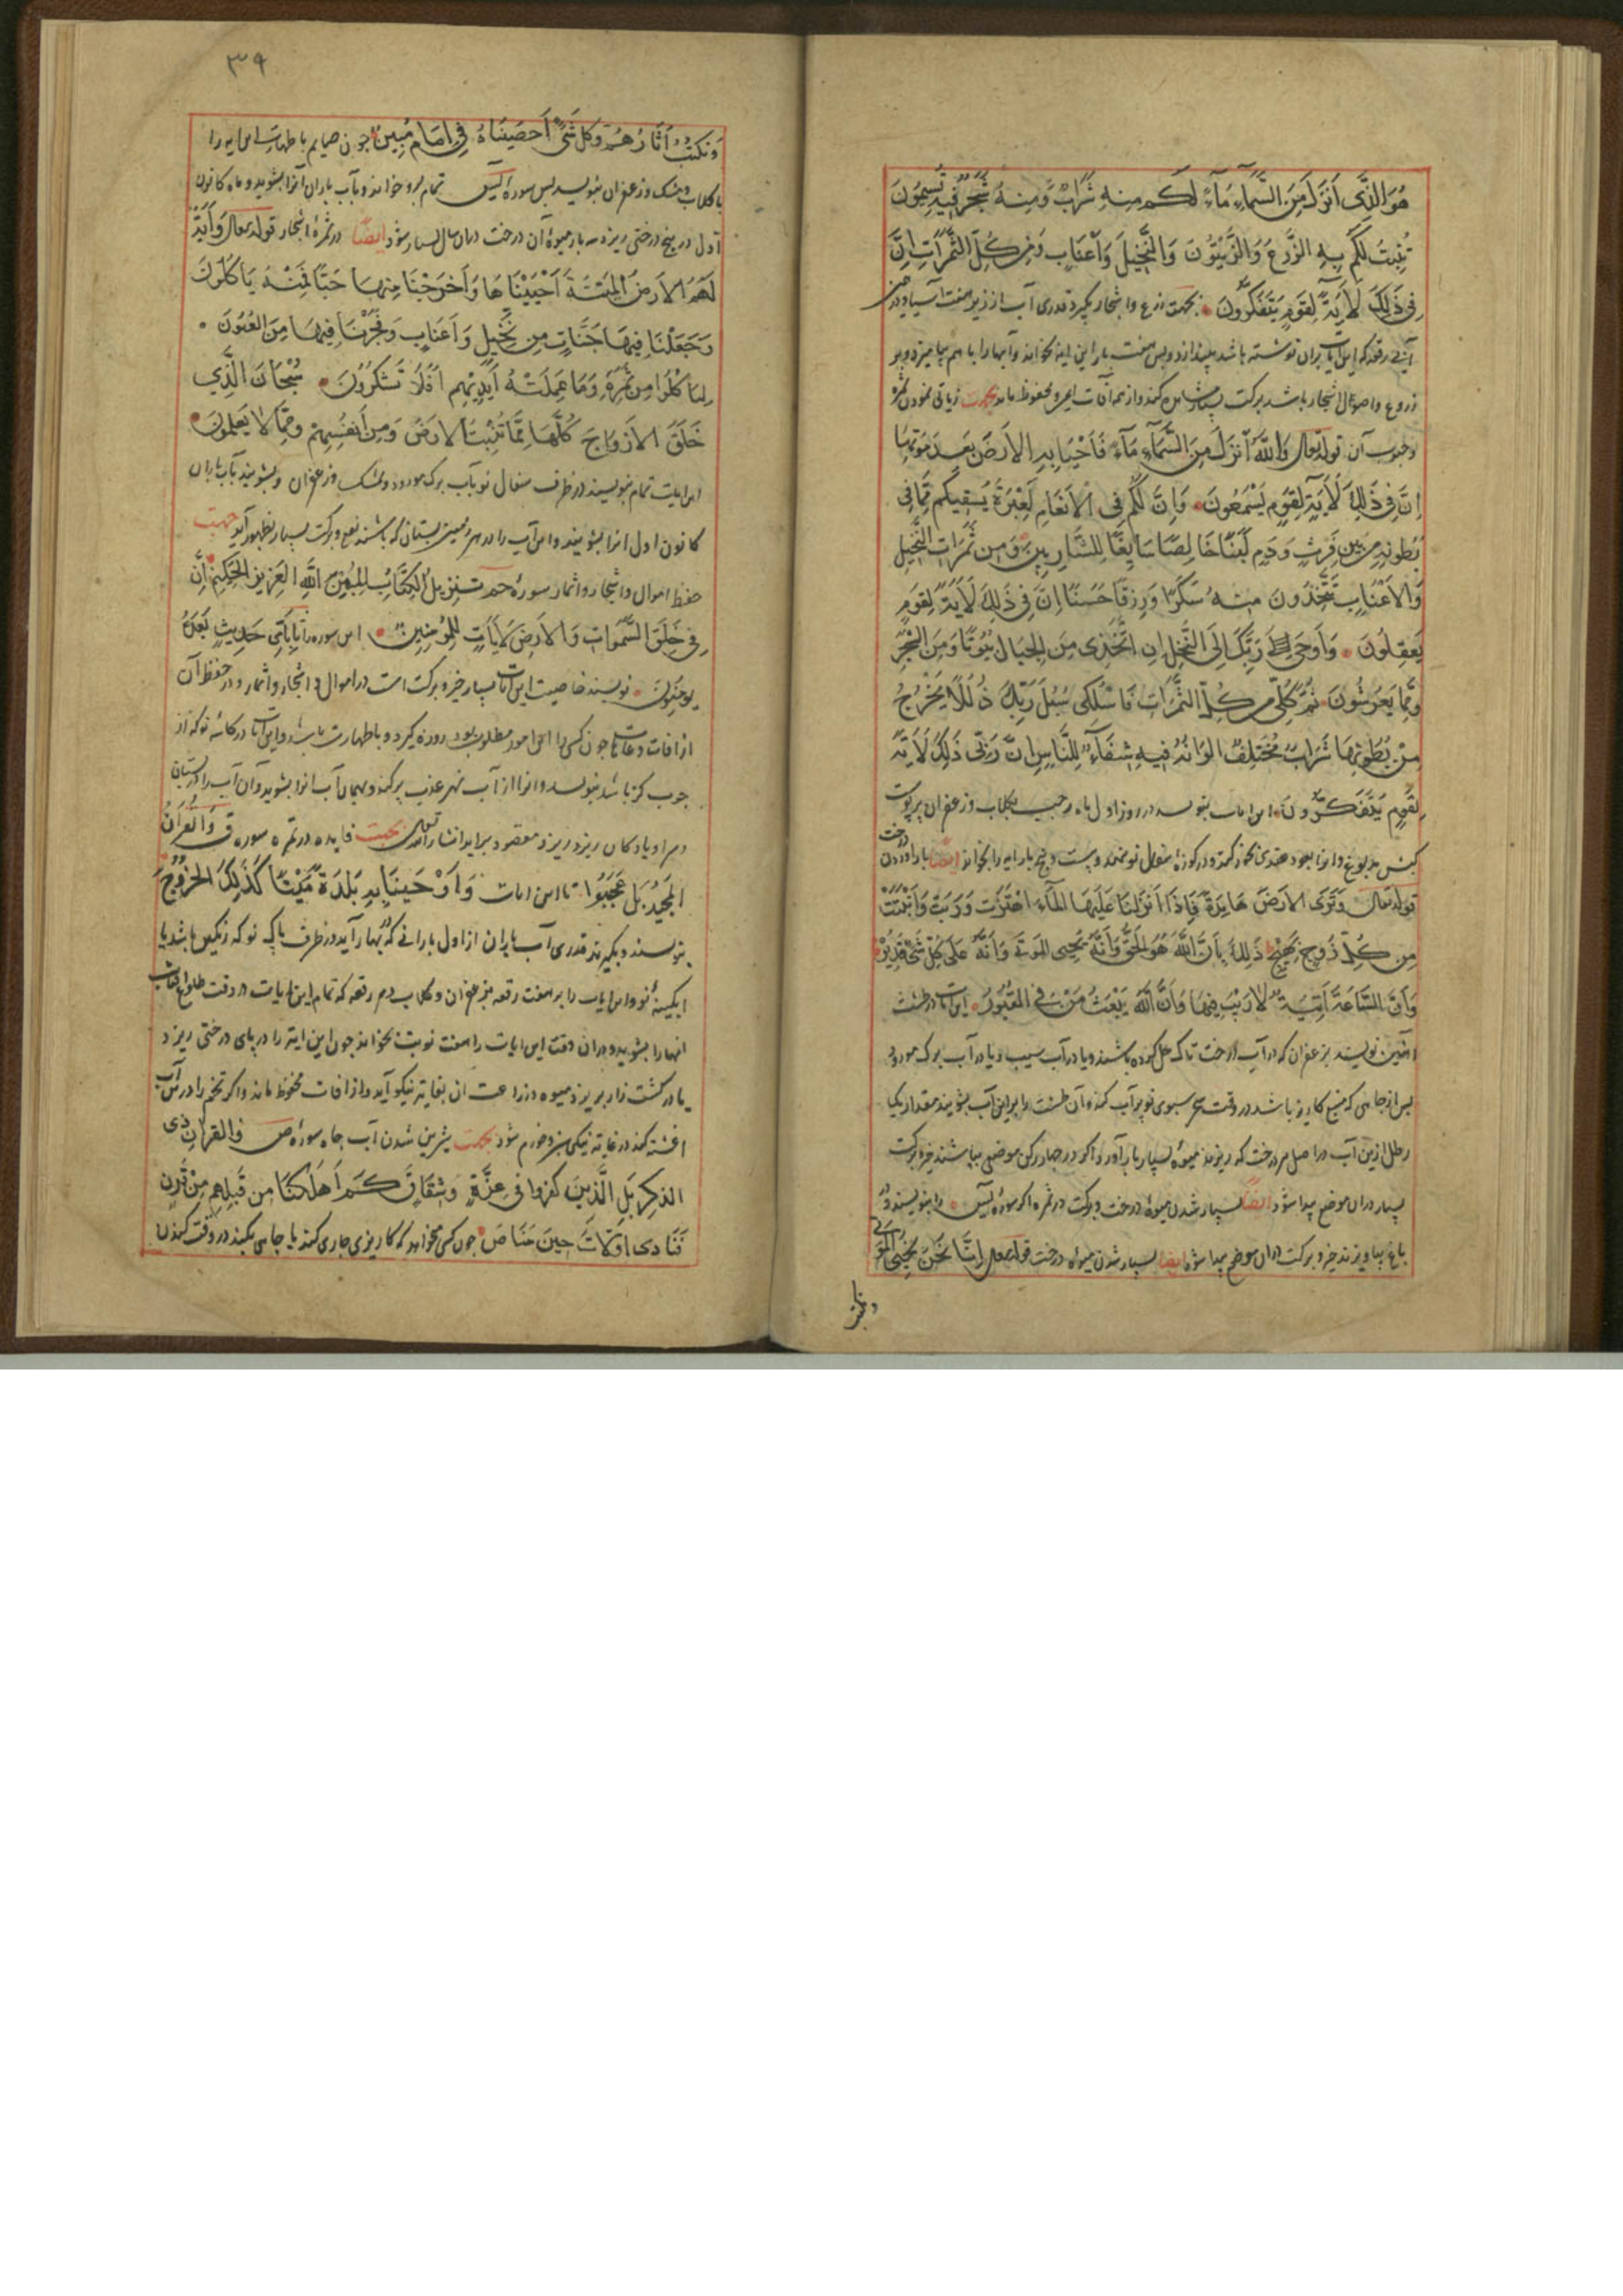 هُوَ الَّذِی أَنزَلَ مِنَ السَّمَآءِ مَآءً لَكُم مِنهُ شَرَابٌ وَمِنهُ شَجَرٌ فِيهِ تُسِيمُونَ
يُنبِتُ لَكُم بِهِ الزَّرعَ وَالزَّيتُونَ وَالنَّخِيلَ وَالأَعنَابِ وَمِن كُلِّ الثَّمَرَاتِ إِنَّ
فِی ذَلِكَ لَآيَةً لِقَومٍ يَتَفَكَّرُونَ بجهت زرع واشجار بگیرد قدری آب از زیر هفت آسیا و در
رقعه که این آیات بران نوشته باشد بیندازد وپس هفت بار این آیه بخواند وآبها را با هم بیامیزد و بر
زروع واصول اشجار باشد برکت بسیار مشاهده کند واز همه آفات محفوظ ماند بجهت زیاتی نمودن ثمره
وحبوب آن قوله تعالی وَاللّٰهُ أَنزَلَ مِنَ السَّمَآءِ مَآءً فَأَحيَا بِهِ الأَرضَ بَعدَ مَوتِهَا
إِنَّ فِی ذَلِكَ لَآيَةً لِقَومٍ يَسمَعُونَ وَإِنَّ لَكُم فِی الأَنعَامِ لَعِبرَةً نُسقِيكُم مِمَّا فِی
بُطُونِهِ مِن بَينِ فَرثٍ وَدَمٍ لَبَنًا خَالِصًا سَائِغًا لِلشَّارِبِينَ وَمِن ثَمَرَاتِ النَّخِيلِ
وَالأَعنَابِ تَتَّخِذُونَ مِنهُ سَكَرًا وَرِزقًا حَسَنًا إِنَّ فِی ذَلِكَ لَآيَةً لِقَومٍ
يَعقِلُونَ وَأَوحَى رَبُّكَ إِلَى النَّحلِ أَنِ اتَّخِذِی مِنَ الجِبَالِ بُيُوتًا وَمِنَ الشَّجَرِ
وَمِمَّا يَعرِشُونَ ثُمَّ كُلِی مِن كُلِّ الثَّمَرَاتِ فَاسلُكِی سُبُلَ رَبِّكِ ذُلُلًا يَخرُجُ
مِن بُطُونِهَا شَرَابٌ مُختَلِفٌ أَلوَانُهُ فِيهِ شِفَآءٌ لِلنَّاسِ إِنَّ فِی ذَلِكَ لَآيَةً
لِقَومٍ يَتَفَكَّرُونَ این ایات بنویسد در روز اول ماه رجب بگلاب وزعفران بر پوست
وانرا بعود هندی بخور کند و در کوزهٔ سفال نو نهند وبیست و پنج بار ایه را بخواند ایضا باراوردن درخت
قوله تعالی وَتَرَى الأَرضَ هَامِدَةً فَإِذَا أَنزَلنَا عَلَيهَا المَآءَ اهتَزَّت وَرَبَت وَأَنبَتَت
مِن كُلِّ زَوجٍ بَهِيجٍ ذَلِكَ بِأَنَّ اللّٰهَ هُوَ الحَقُّ وَأَنَّهُ يُحيِی المَوتَى وَأَنَّهُ عَلَى كُلِّ شَیءٍ قَدِيرٌ
وَأَنَّ السَّاعَةَ آتِيَةٌ لَا رَيبَ فِيهَا وَأَنَّ اللّٰهَ يَبعَثُ مَن فِی القُبُورِ این آیات در طشت
نویسند بزعفران که در آب درخت تاک حل کرده باشند ویا در آب سیب ویا در آب برک مورد و
پس از چاهی که منبع کاریز باشد در وقت سحر سبوی نو پر آب کند وآن طشت را براین آب بشویند مقدار یک
رطل ازین آب در اصل هر درخت که ریزند میوهٔ بسیار بار آورد واکر در چهار رکن موضعی بپاشند خیر وبرکت
بسیار دران موضع پیدا شود ایضا بسیار شدن میوهٔ درخت وبرکت در ثمره اکر سورهٔ یس را بنویسند ودر
باغ بیاویزند خیر و برکت دران موضع پیدا شود ایضا بسیار شدن میوهٔ درخت قوله تعالی إِنَّا نَحنُ نُحيِی المَوتَى
ونکتب
٣٩
وَنَكتُبُ آثَارَهُم وَكُلَّ شَیءٍ أَحصَينَاهُ فِی إِمَامٍ مُبِينٍ چون صایم باطهارت این ایه را
با گلاب ومشک وزعفران بنویسد پس سورهٔ یس تمام برو خواند وبآب باران آنرا بشوید و ماه کانون
اول در بیخ درختی ریزد سه بار میوهٔ آن درخت دران سال بسیار شود ایضا در ثمرهٔ اشجار قوله تعالی وَآيَةٌ
لَهُمُ الأَرضُ المَيتَةُ أَحيَينَاهَا وَأَخرَجنَا مِنهَا حَبًّا فَمِنهُ يَأكُلُونَ
وَجَعَلنَا فِيهَا جَنَّاتٍ مِن نَخِيلٍ وَأَعنَابٍ وَفَجَّرنَا فِيهَا مِنَ العُيُونِ
لِيَأكُلُوا مِن ثَمَرِهِ وَمَا عَمِلَتهُ أَيدِيهِم أَفَلَا تَشكُرُونَ سُبحَانَ الَّذِی
خَلَقَ الأَزوَاجَ كُلَّهَا مِمَّا تُنبِتُ الأَرضُ وَمِن أَنفُسِهِم وَمِمَّا لَا يَعلَمُونَ
این ایات تمام بنویسند در ظرف سفال نو بآب برک مورد و مشک وزعفران و بشویند بآب باران
کانون اول انرا بشویند واین آب را در هر زمین بستان که باشند نفع و برکت بسیار بظهور آید جهت
حفظ اموال واشجار واثمار سورهٔ حم تَنزِيلُ الكِتَابِ مِنَ اللّٰهِ العَزِيزِ الحَكِيمِ إِنَّ
فِی خَلقِ السَّمَوَاتِ وَالأَرضِ لَآيَاتٍ لِلمُؤمِنِينَ این سوره را تا بِأَیِّ حَدِيثٍ بَعدَهُ
يُؤمِنُونَ نویسند خاصیت این آیات بسیار خیر و برکت است در اموال و اشجار واثمار و در حفظ آن
از آفات وعاهات چون کسی را این امور مطلوب بود روزه گیرد و باطهارت باشد واین آیات در کاسهٔ نو که از
چوب کز باشد بنویسد وانرا از آب نهر عذب پر کند وبهمان آب انرا بشوید وآن آب را در بستان
وسرا و یا دکان ریزد مقصود برآید انشاء الله تعالی بجهت فایده در ثمره سوره ق وَالقُرآنِ
المَجِيدِ بَل عَجِبُوا تا این ایات وَأَحيَينَا بِهِ بَلدَةً مَيتًا كَذَلِكَ الخُرُوجُ
بنویسند وبگیرند قدری آب باران از اول بارانی که بهار آید در ظرف پاک نو که رنگین باشد یا
ابگینهٔ نو واین ایات را بر هفت رقعه بزعفران و گلاب بر هر رقعه که تمام این ایات در وقت طلوع آفتاب
انها را بشوید ودران وقت این ایات را هفت نوبت بخواند چون این ایه را در پای درختی ریزد
یا در کشت زار بریزد میوه وزراعت ان بغایت نیکو آید واز افات محفوظ ماند واکر تخم را درین آب
اغشته کند در غایة نیکی سبز وخرم شود بجهت شیرین شدن آب چاه سورهٔ ص والقران ذی
الذِّكرِ بَلِ الَّذِينَ كَفَرُوا فِی عِزَّةٍ وَشِقَاقٍ كَم أَهلَكنَا مِن قَبلِهِم مِن قَرنٍ
فَنَادَوا وَلَاتَ حِينَ مَنَاصٍ چون کسی بخواهد که کاریزی جاری کند یا چاهی بکند در وقت کندن